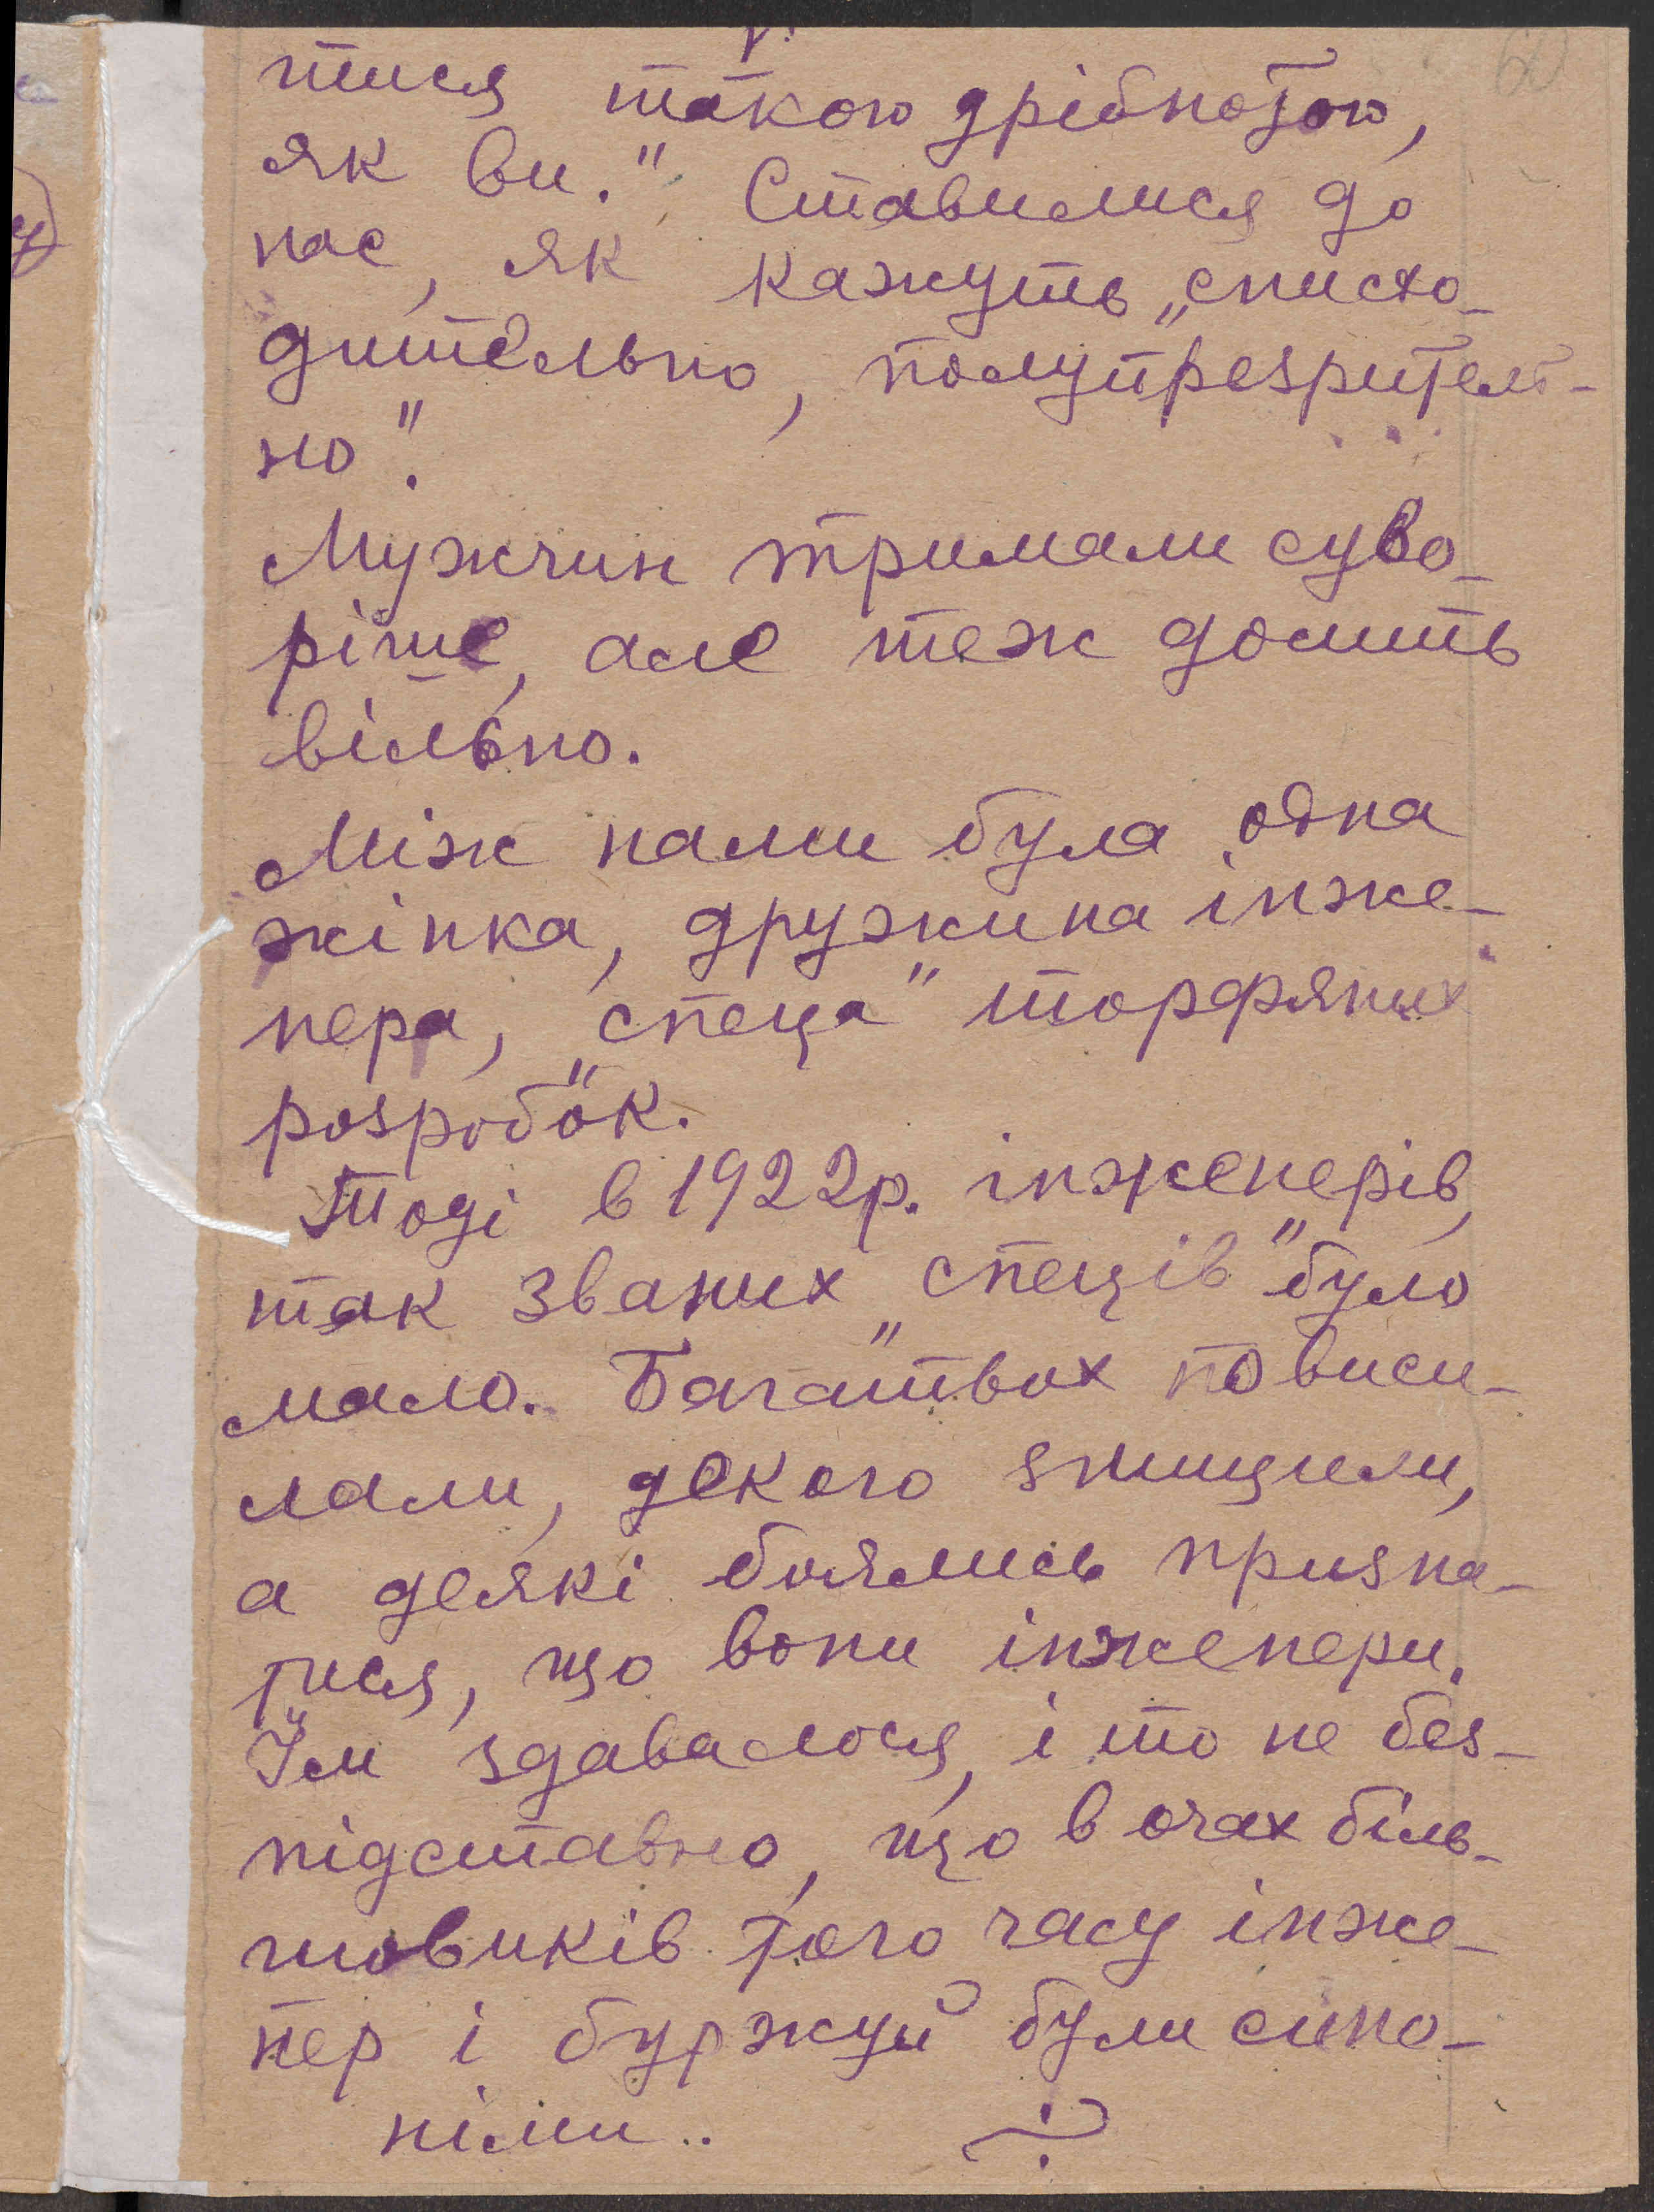 60
тися такою дрібнотою,
як ви." Ставилися до
нас, як кажуть „снисхо-
дительно, полупрезритель-
но".
Мужчин тримали суво-
ріше, але теж досить
вільно.
Між нами була одна
жінка, дружина інже-
нера, „спеца" торфяних
розробок.
Тоді в 1922р. інженерів,
так званих „спеців" було
мало. Багатьох повиси-
лали, декого знищили,
а деякі боялись призна-
тися, що вони інженери.
Їм здавалося, і то не без-
підставно, що в очах біль-
шовиків того часу інже-
нер і буржуй були сино-
німи..